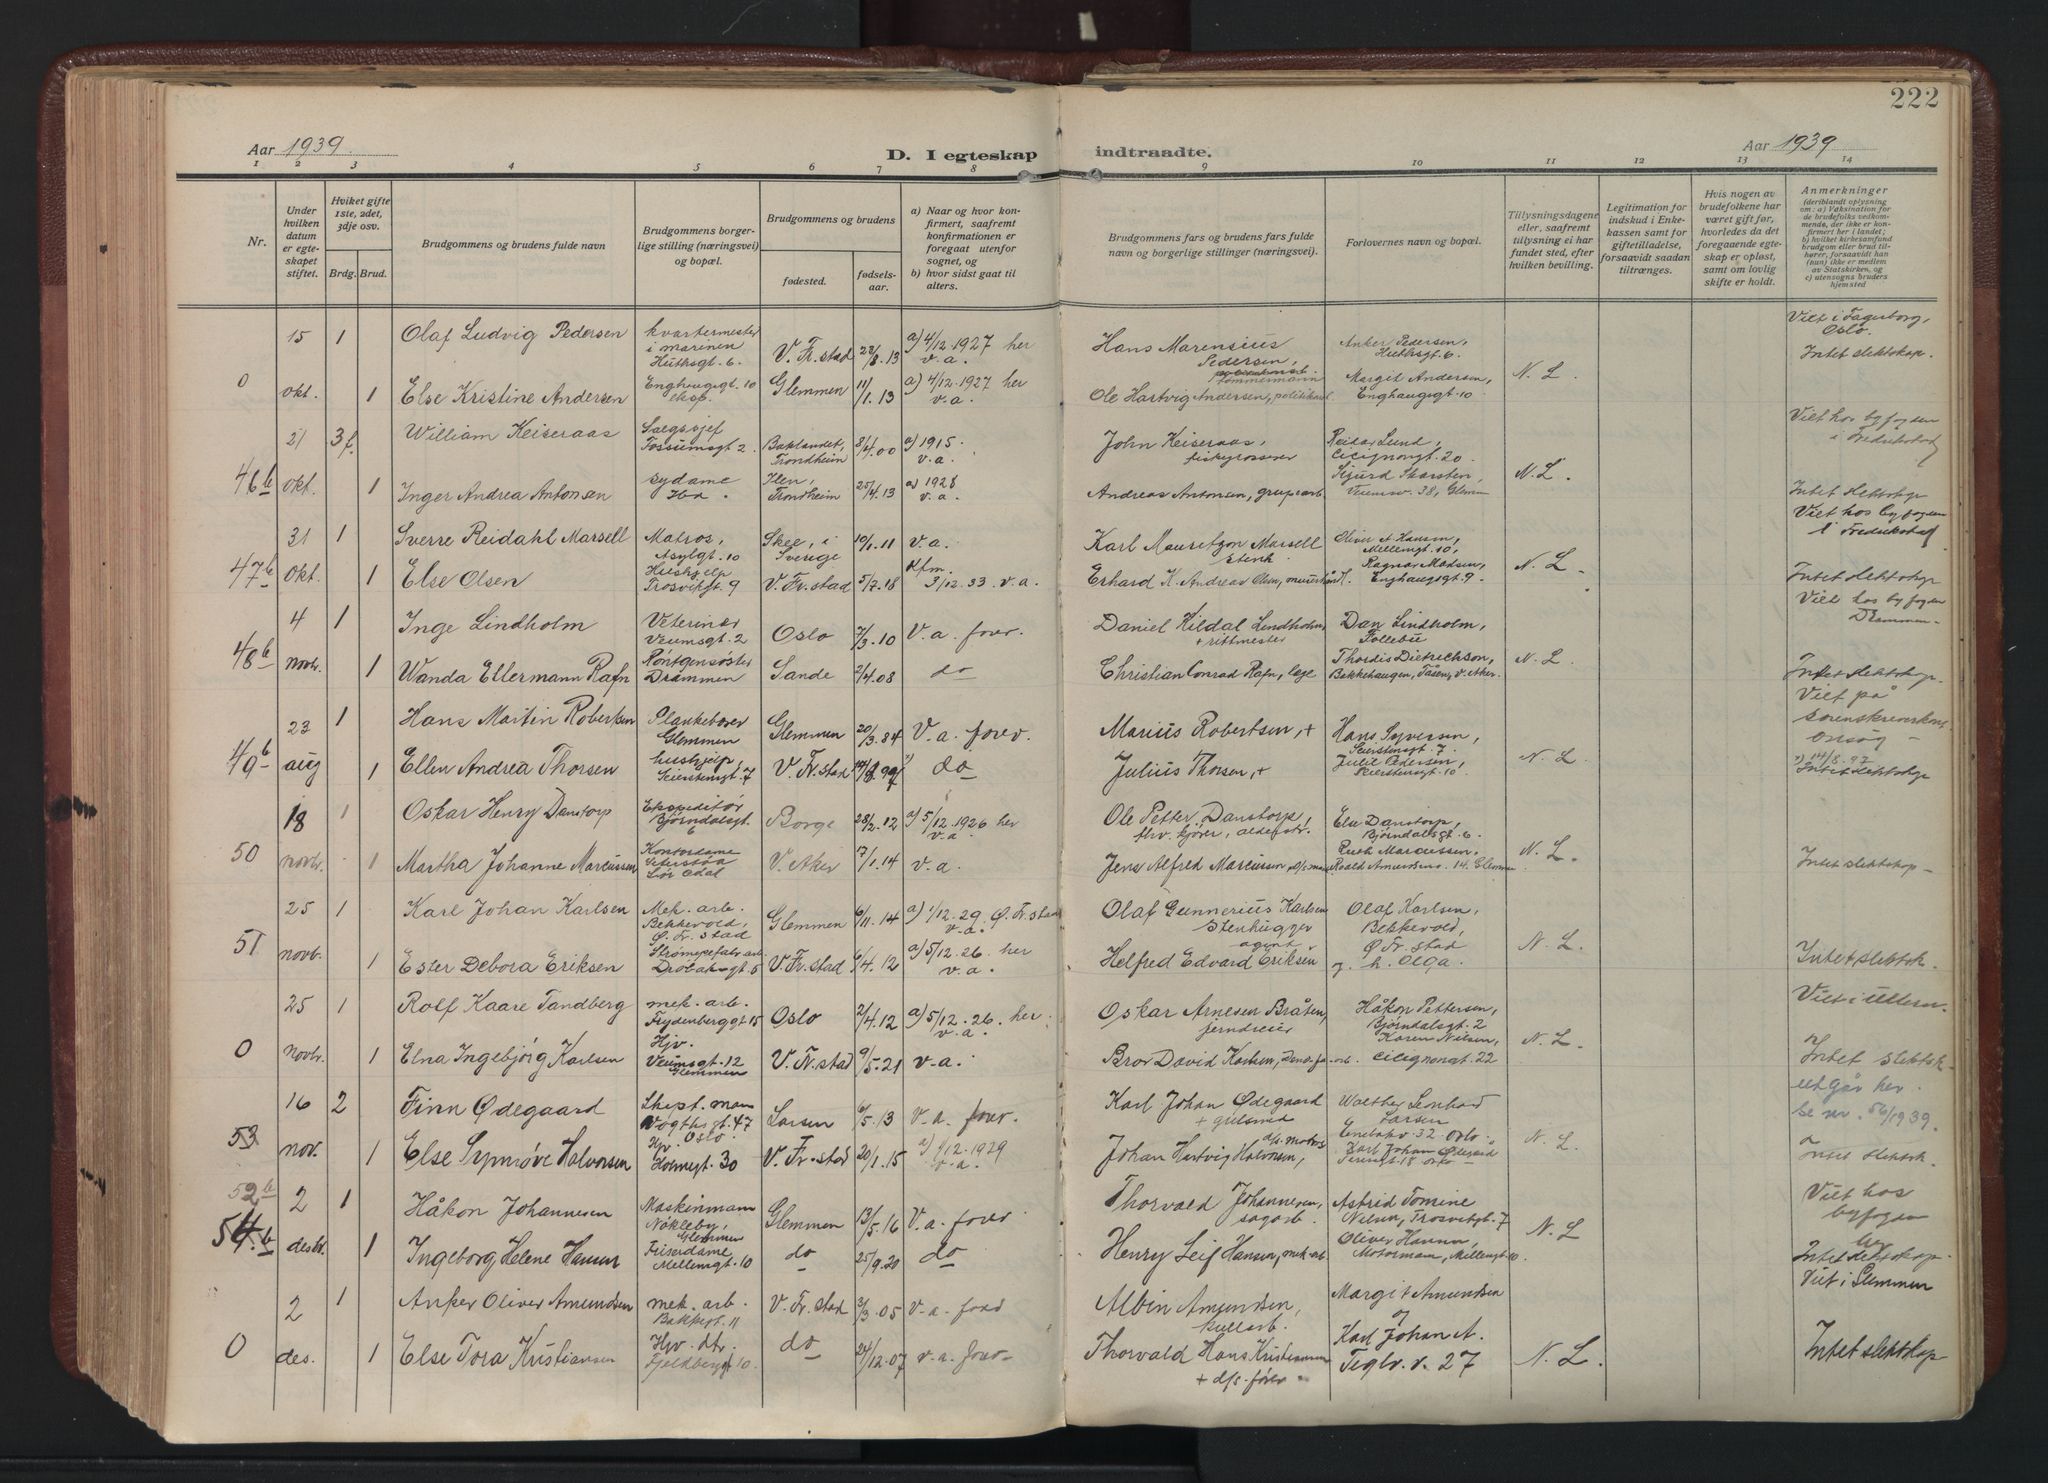 222
Aar 1939.
D. I egteskap indtraadte.
Aar 1939
1 2 3 4 5 6 7 8 9 10 11 12 13 14
Nr.
Under hvilken datum er egteskapet stiftet.
Hviket gifte 1ste, 2det, 3dje osv.
Brdg. Brud.
Brudgommens og brudens fulde navn
Brudgommens borgerlige stilling (næringsvei) og bopæl.
Brudgommens og brudens
fødested.
fødselsaar.
a) Naar og hvor konfirmert, saafremt konfirmationen er foregaat utenfor sognet, og
b) hvor sidst gaat til alters.
Brudgommens fars og brudens fars fulde navn og borgerlige stillinger (næringsvei).
Forlovernes navn og bopæl.
Tillysningsdagene eller, saafremt tillysning ei har fundet sted, efter hvilken bevilling.
Legitimation for indskud i Enkekassen samt for giftetilladelse, forsaavidt saadan tiltrænges.
Hvis nogen av brudefolkene har været gift før, hvorledes da det foregaaende egteskap er opløst, samt om lovlig skifte er holdt.
Anmerkninger
(deriblandt oplysning om: a) Vaksination for de brudefolks vedkommende, der ikke er konfirmert her i landet; b) hvilket kirkesamfund brudgom eller brud tilhører, forsaavidt han (hun) ikke er medlem av Statskirken, og c) utensogns bruders hjemsted
15 1 Olaf Ludvig Pedersen kvartermester i marinen Huthsgt. 6. V. Fr.stad 22/8.13 a) 4/12.1927 her v.a. Hans Marensius Pedersen, tømmermann Anker Pedersen, Huthsgt 6. Viet i Fagerborg, Oslo. Intet slektskap.
0 okt. 1 Else Kristine Andersen Enghaugsgt. 10 eksp. Glemmen 11/1.13 a) 4/12.1927 her v.a. Ole Hartvig Andersen, Margit Andersen, Enghaugsgt. 10. N. L.
21 3f. William Keiseraas Salgssjef Fossumsgt 2 Baklandet, Trondheim 8/4.00 a) 1915 v.a. John Keiseraas, fiskegrosserer Reidar Lund, Cicignongt. 20. Viet hos byfogden i Fredrikstad
46b okt. 1 Inger Andrea Antonsen sydame Ilen, Trondheim 25/4.13 a) 1928 v.a. Andreas Antonsen, grubearb. Sigurd Skarsten, Veumsv. 38, Glemm N. L. Intet slektskap
31 1 Sverre Reidahl Marsell Matros, Asylgt. 10 Skee, i Sverige 10/1.11 v.a. Karl Mauritzon Marsell stenh. Oliver A Hansen, Mellemgt. 10, Viet hos byfogden i Fredrikstad
47b okt. 1 Else Olsen Hushjelp Trosvikgt. 9 V. Fr.stad 5/7.18 Kfm. 3/12.33. v.a. Erhard K. Andreas Olsen, Ragnar Madsen, Enghaugsgt 9. N. L. Intet slektskap
4 1 Inge Lindholm Veterinær Veumsgt. 2 Oslo 7/3.10 v.a. forv. Daniel Kildal Lindholm, + rittmester Dan Lindholm, Follebu Viet hos byfogden Drammen.
48b novbr. 1 Wanda Ellermann Rafn Røntgensøster Drammen Sande 2/4.08 do Christian Conrad Rafn, læge Thordis Dietrichson, Bakkehaugen, Tåsen, V. Aker. N. L. Intet slektskap.
23 1 Hans Martin Robertsen Plankebærer Glemmen Glemmen 20/3.84 V.a. forv. Marius Robertsen, + Hans Syversen, Seierstensgt. 7. Viet på sorenskriverkont. Onsøy
49b aug 1 Ellen Andrea Thorsen hushjelp, Seierstensgt. 7 V. Fr.stad 14/8.97 do Julius Thorsen, + Julie Pedersen, Seierstensgt. 10 N. L. 14/8.97 Intet slektskap
18 1 Oskar Henry Danstorp Ekspeditør Bjørndalsgt. 6 Borge 28/2.12 a) 5/12.1926 her v.a. Ole Petter Danstorp, fhv. kjører, alderstr. Else Danstorp, Bjørndalsgt. 6.
50 novbr. 1 Martha Johanne Marcussen Kontordame Seterstøa Sør Odal V. Aker 17/1.14 v.a. Jens Alfred Marcussen Ruth Marcussen, Roald Amundsens. 14. Glemmen N. L. Intet slektskap
25 1 Karl Johan Karlsen Mek. arb. Bekkevold, Ø. Fr. stad Glemmen 6/11.14 a) 1/12.29. Ø. Fr. stad v.a. Olaf Gunnerius Karlsen Stenhugger Olaf Karlsen, Bekkevold, Ø Fr. stad
51 novb. 1 Ester Debora Eriksen Strømpefabr. arb. Drøbaksgt 5 V. Fr. stad 6/4.12 a) 5/12.26. her v.a. Helfred Edvard Eriksen agent. g. h. Olga. N. L. Intet slektsk.
25 1 Rolf Kaare Tandberg mek. arb. Frydenberggt 15 Oslo 2/4.12 a) 5/12.26. her. v.a. Oskar Arnesen Bråten, jerndreier Håkon Pettersen, Bjørndalsgt. 2 Viet i Ullern.
0 novbr. 1 Elna Ingebjørg Karlsen Hjv. Veumsgt. 12 Glemmen V. Fr. stad 9/5.21 v.a. Bror David Karlsen, Karen Nilsen, Cicignongt. 22 N. L. Intet slektsk.
16 2 Finn Ødegaard Skipt. mann Vogtsgt. 47 Oslo. Larsen 6/5.13 v.a. forv. Karl Johan Ødegaard + gullsmed Walther Leonhard Larsen Enebakv. 32 Oslo. utgår her. Se nr. 56/1939.
53 nov. 1 Else Synnøve Halvorsen Hjv. Holmegt. 30 V. Fr. stad 20/1.15 a) 1/12.1929 v.a. Johan Hartvig Halvorsen, Karl Johan Ødegård N. L. Intet slektsk.
52b 2 1 Håkon Johannesen Maskinmann Nøkleby, Glemmen Glemmen 13/5.16 V.a. forv. Thorvald Johannesen, sagarb. Astrid Tomine Nilsen, Trosvikgt. 7 Viet hos byfogden her
54b desbr. 1 Ingeborg Helene Hansen Friserdame Mellemgt. 10 do 25/9.20 do Henry Leif Hansen, mek. arb Oliver Hansen, Motormann, Mellemgt. 10. N. L Intet slektskap.
2 1 Anker Oliver Amundsen mek. arb. Bakkegt. 11 V. Fr. stad 3/3.05 v.a. forv Albin Amundsen, kullarb. Margit Amundsen Viet i Glemmen
0 des. 1 Else Tora Kristiansen Hjv. dtr. Fjeldberggt 10. do 24/12.07 v.a. forv. Thorvald Hans Kristiansen + d/s. fører. Karl Johan A. Teglv. v. 27 N. L. Intet slektskap